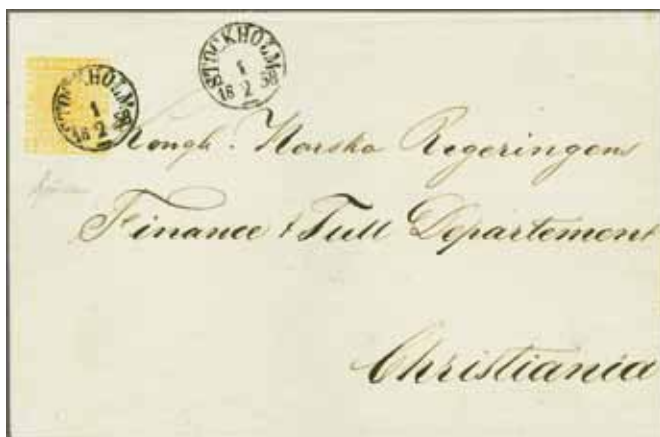 STOCKHOLM
1
18 2 58
STOCKHOLM
1
18 2 58
Kongl. Norska Regeringens
Finance & Tull Departement
Christiania